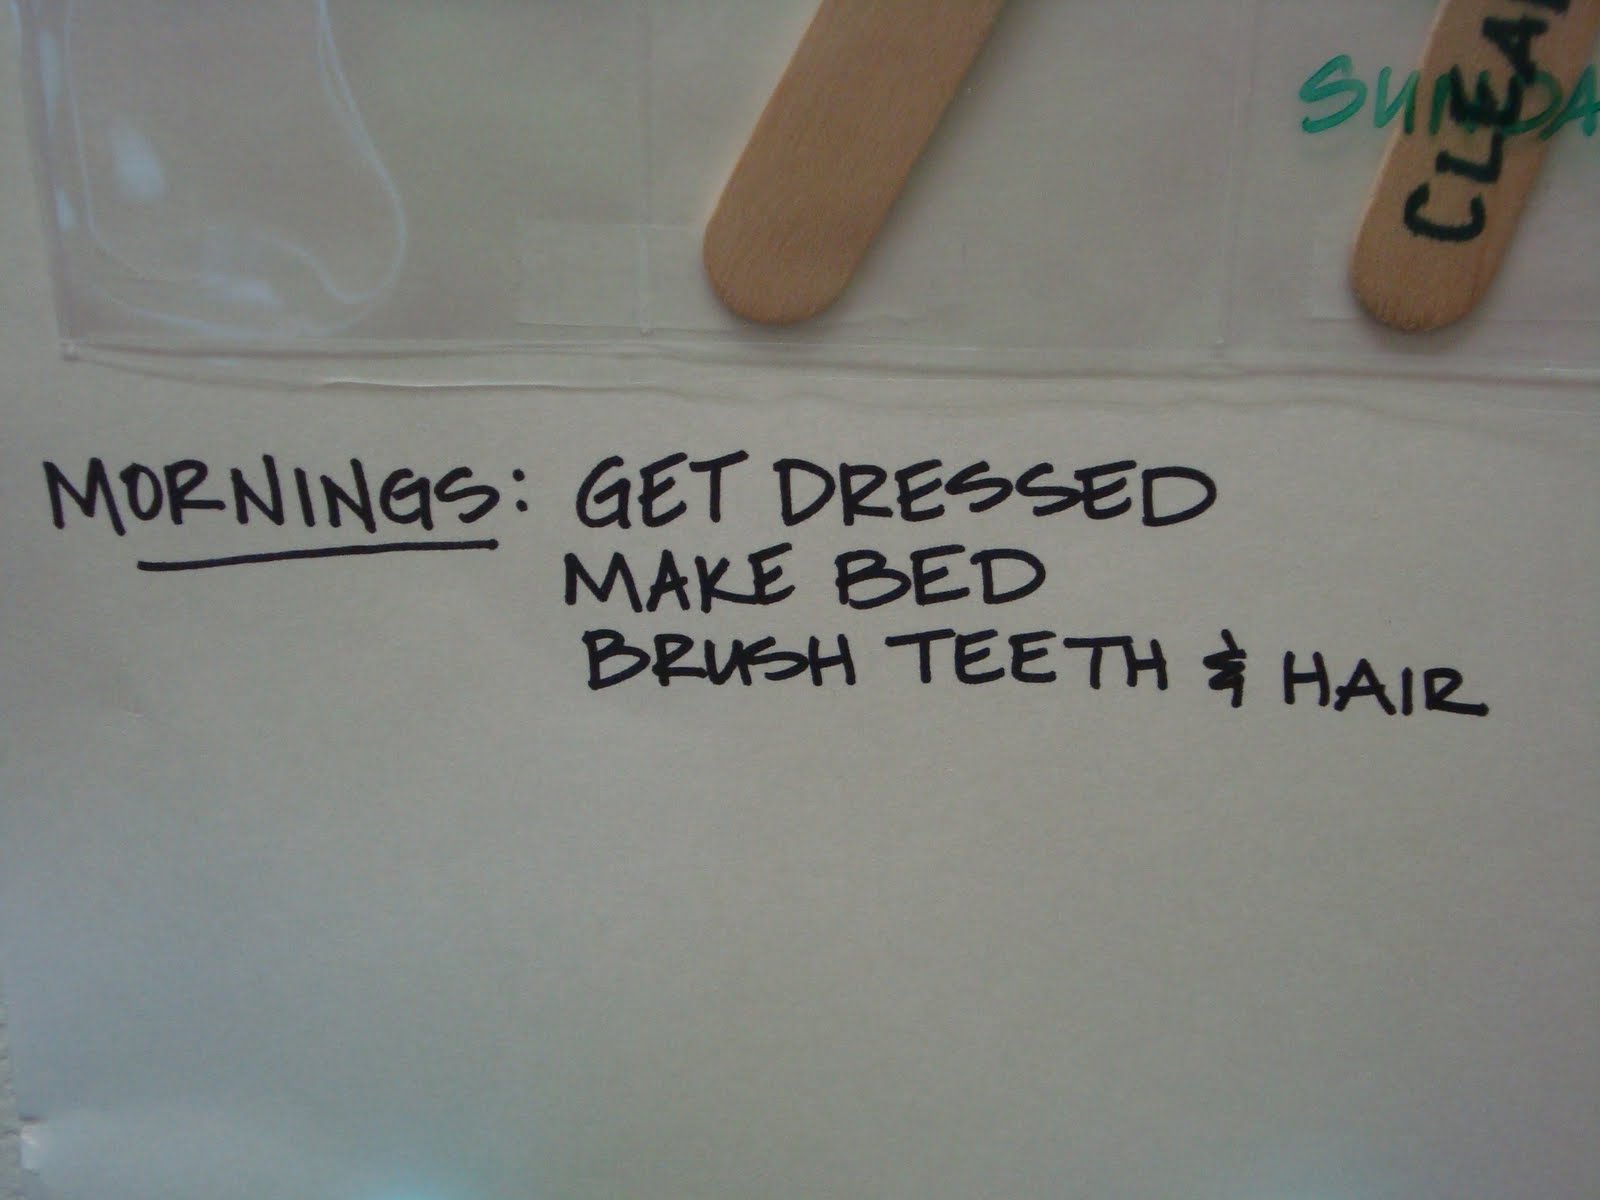 MORNINGS: GET DRESSED
MAKE BED
BRUSH TEETH & HAIR